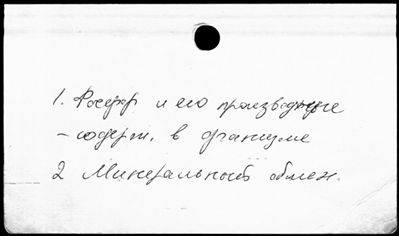 1. Фосфор и его производные
- содерж. в организме
2 Минеральный обмен.